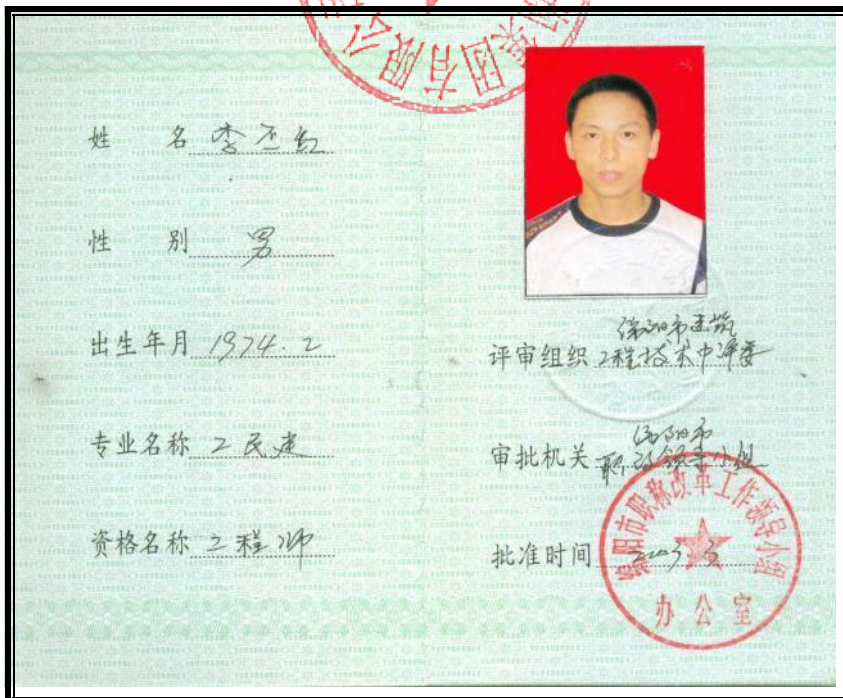 有限公
集团
姓 名 李
性 别 男
出生年月 1974.2
专业名称 工民建
资格名称 工程师
评审组织 绵阳市建筑
工程技术中评委
审批机关 绵阳市
职改领导小组
批准时间
绵阳市职称改革工作领导小组
办公室